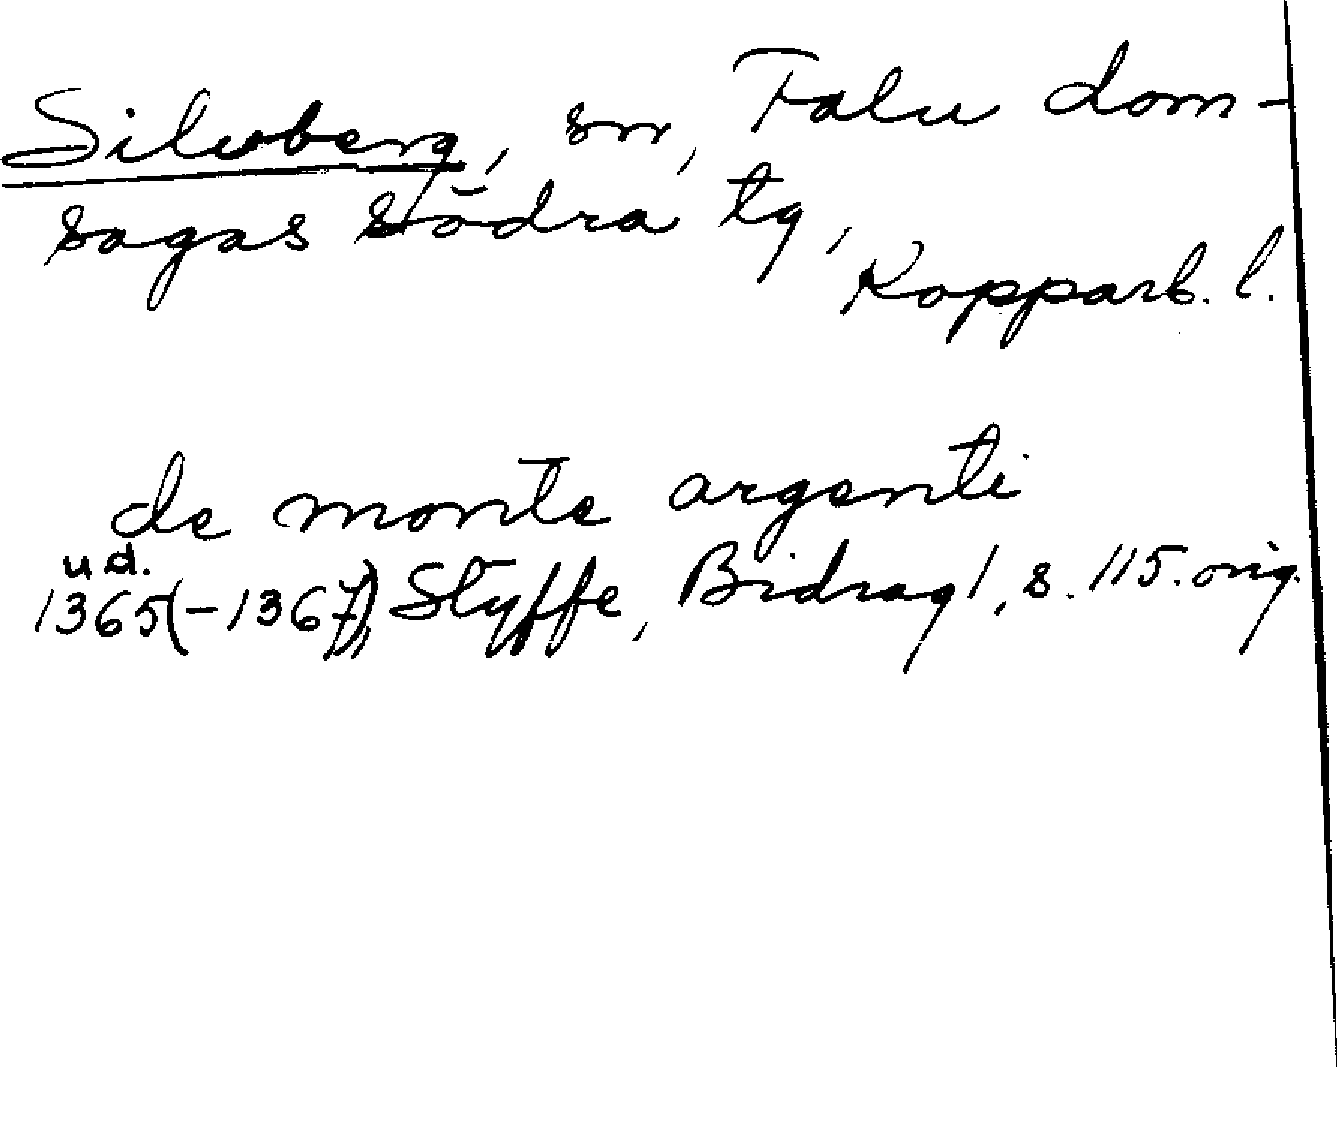 Silvberg, sn, Falu dom-
sagas södra tg,
Kopparb. l.
de monte argenti
u.d.
1365(-1367), Styffe, Bidrag 1, s. 115. orig.